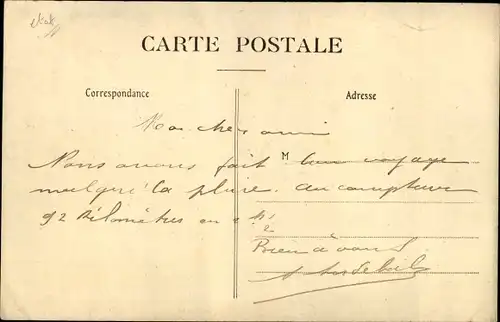 CARTE POSTALE
Correspondance
Adresse
Mon cher ami
Nous avons fait M bon voyage
malgré la pluie. au compteur
92 kilomètres en
Bien à vous